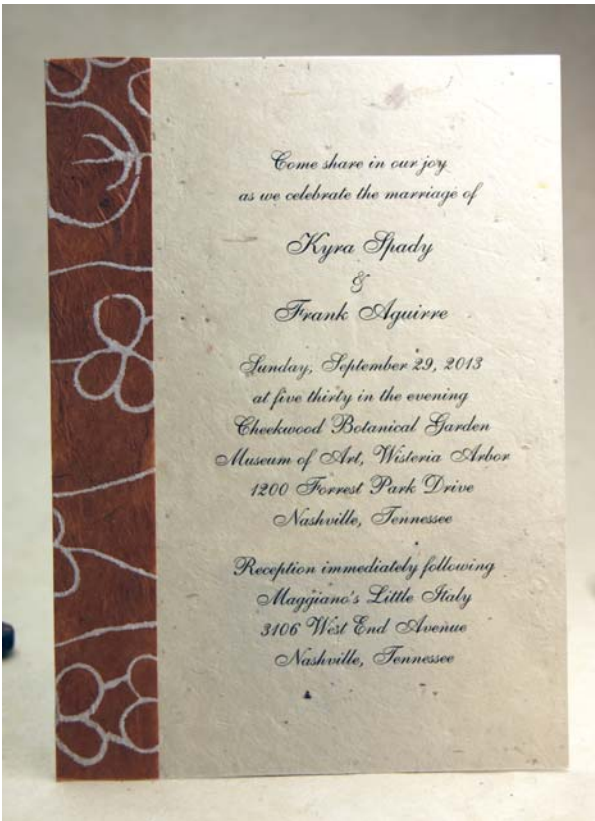 Come share in our joy
as we celebrate the marriage of
Kyra Spady
&
Frank Aguirre
Sunday, September 29, 2013
at five thirty in the evening
Cheekwood Botanical Garden
Museum of Art, Wisteria Arbor
1200 Forrest Park Drive
Nashville, Tennessee
Reception immediately following
Maggiano's Little Italy
3106 West End Avenue
Nashville, Tennessee